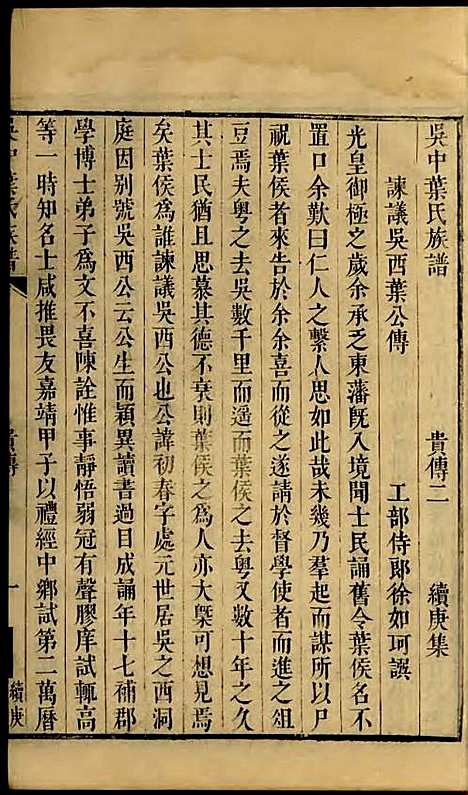 吳中葉氏族譜　貴傳二　續庚集
諫議吳西葉公傳　工部侍郎徐如珂譔
光皇御極之歲余承乏東藩既入境聞士民誦舊令葉侯名不
置口余歎曰仁人之繫人思如此哉未幾乃羣起而謀所以尸
祝葉侯者來告於余余喜而從之遂請於督學使者而進之俎
豆焉夫粤之去吳數千里而遥而葉侯之去粤又數十年之久
其士民猶且思慕其德不衰則葉侯之為人亦大槩可想見焉
矣葉侯為誰諫議吳西公也公諱初春字處元世居吳之西洞
庭因别號吳西公云公生而穎異讀書過目成誦年十七補郡
學博士弟子為文不喜陳詮惟事靜悟弱冠有聲膠庠試輒高
等一時知名士咸推畏友嘉靖甲子以禮經中鄉試第二萬曆
吳中葉氏族譜　貴傳　一　續庚